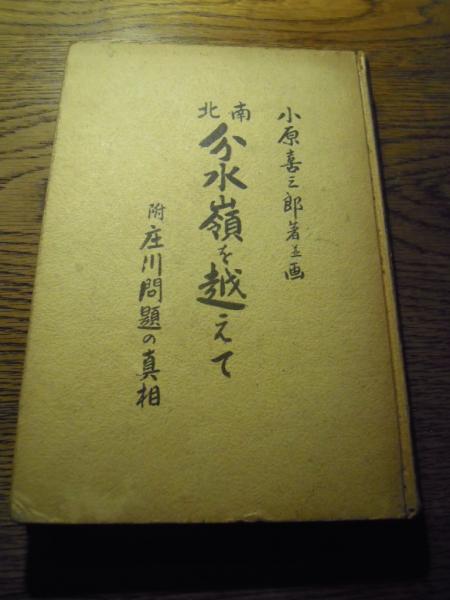 小原喜三郎著並画
南北
分水嶺を越えて
附 庄川問題の真相